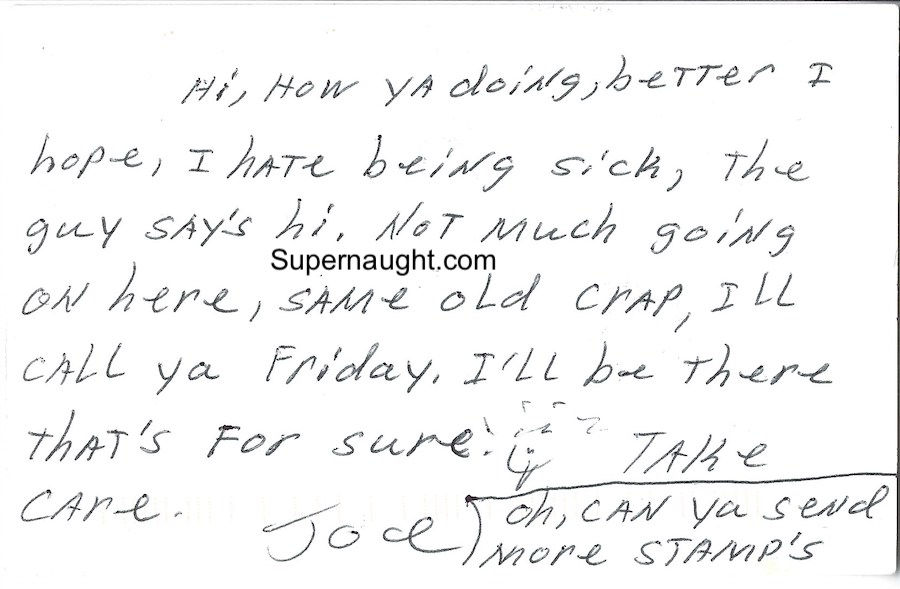 Hi, How ya doing, better I
hope, I hate being sick, The
guy say's hi. Not much going
Supernaught.com
on here, same old crap, I ll
call ya Friday. I'll be there
that's for sure.
Take
care.
Joel
oh, can ya send
more stamp's